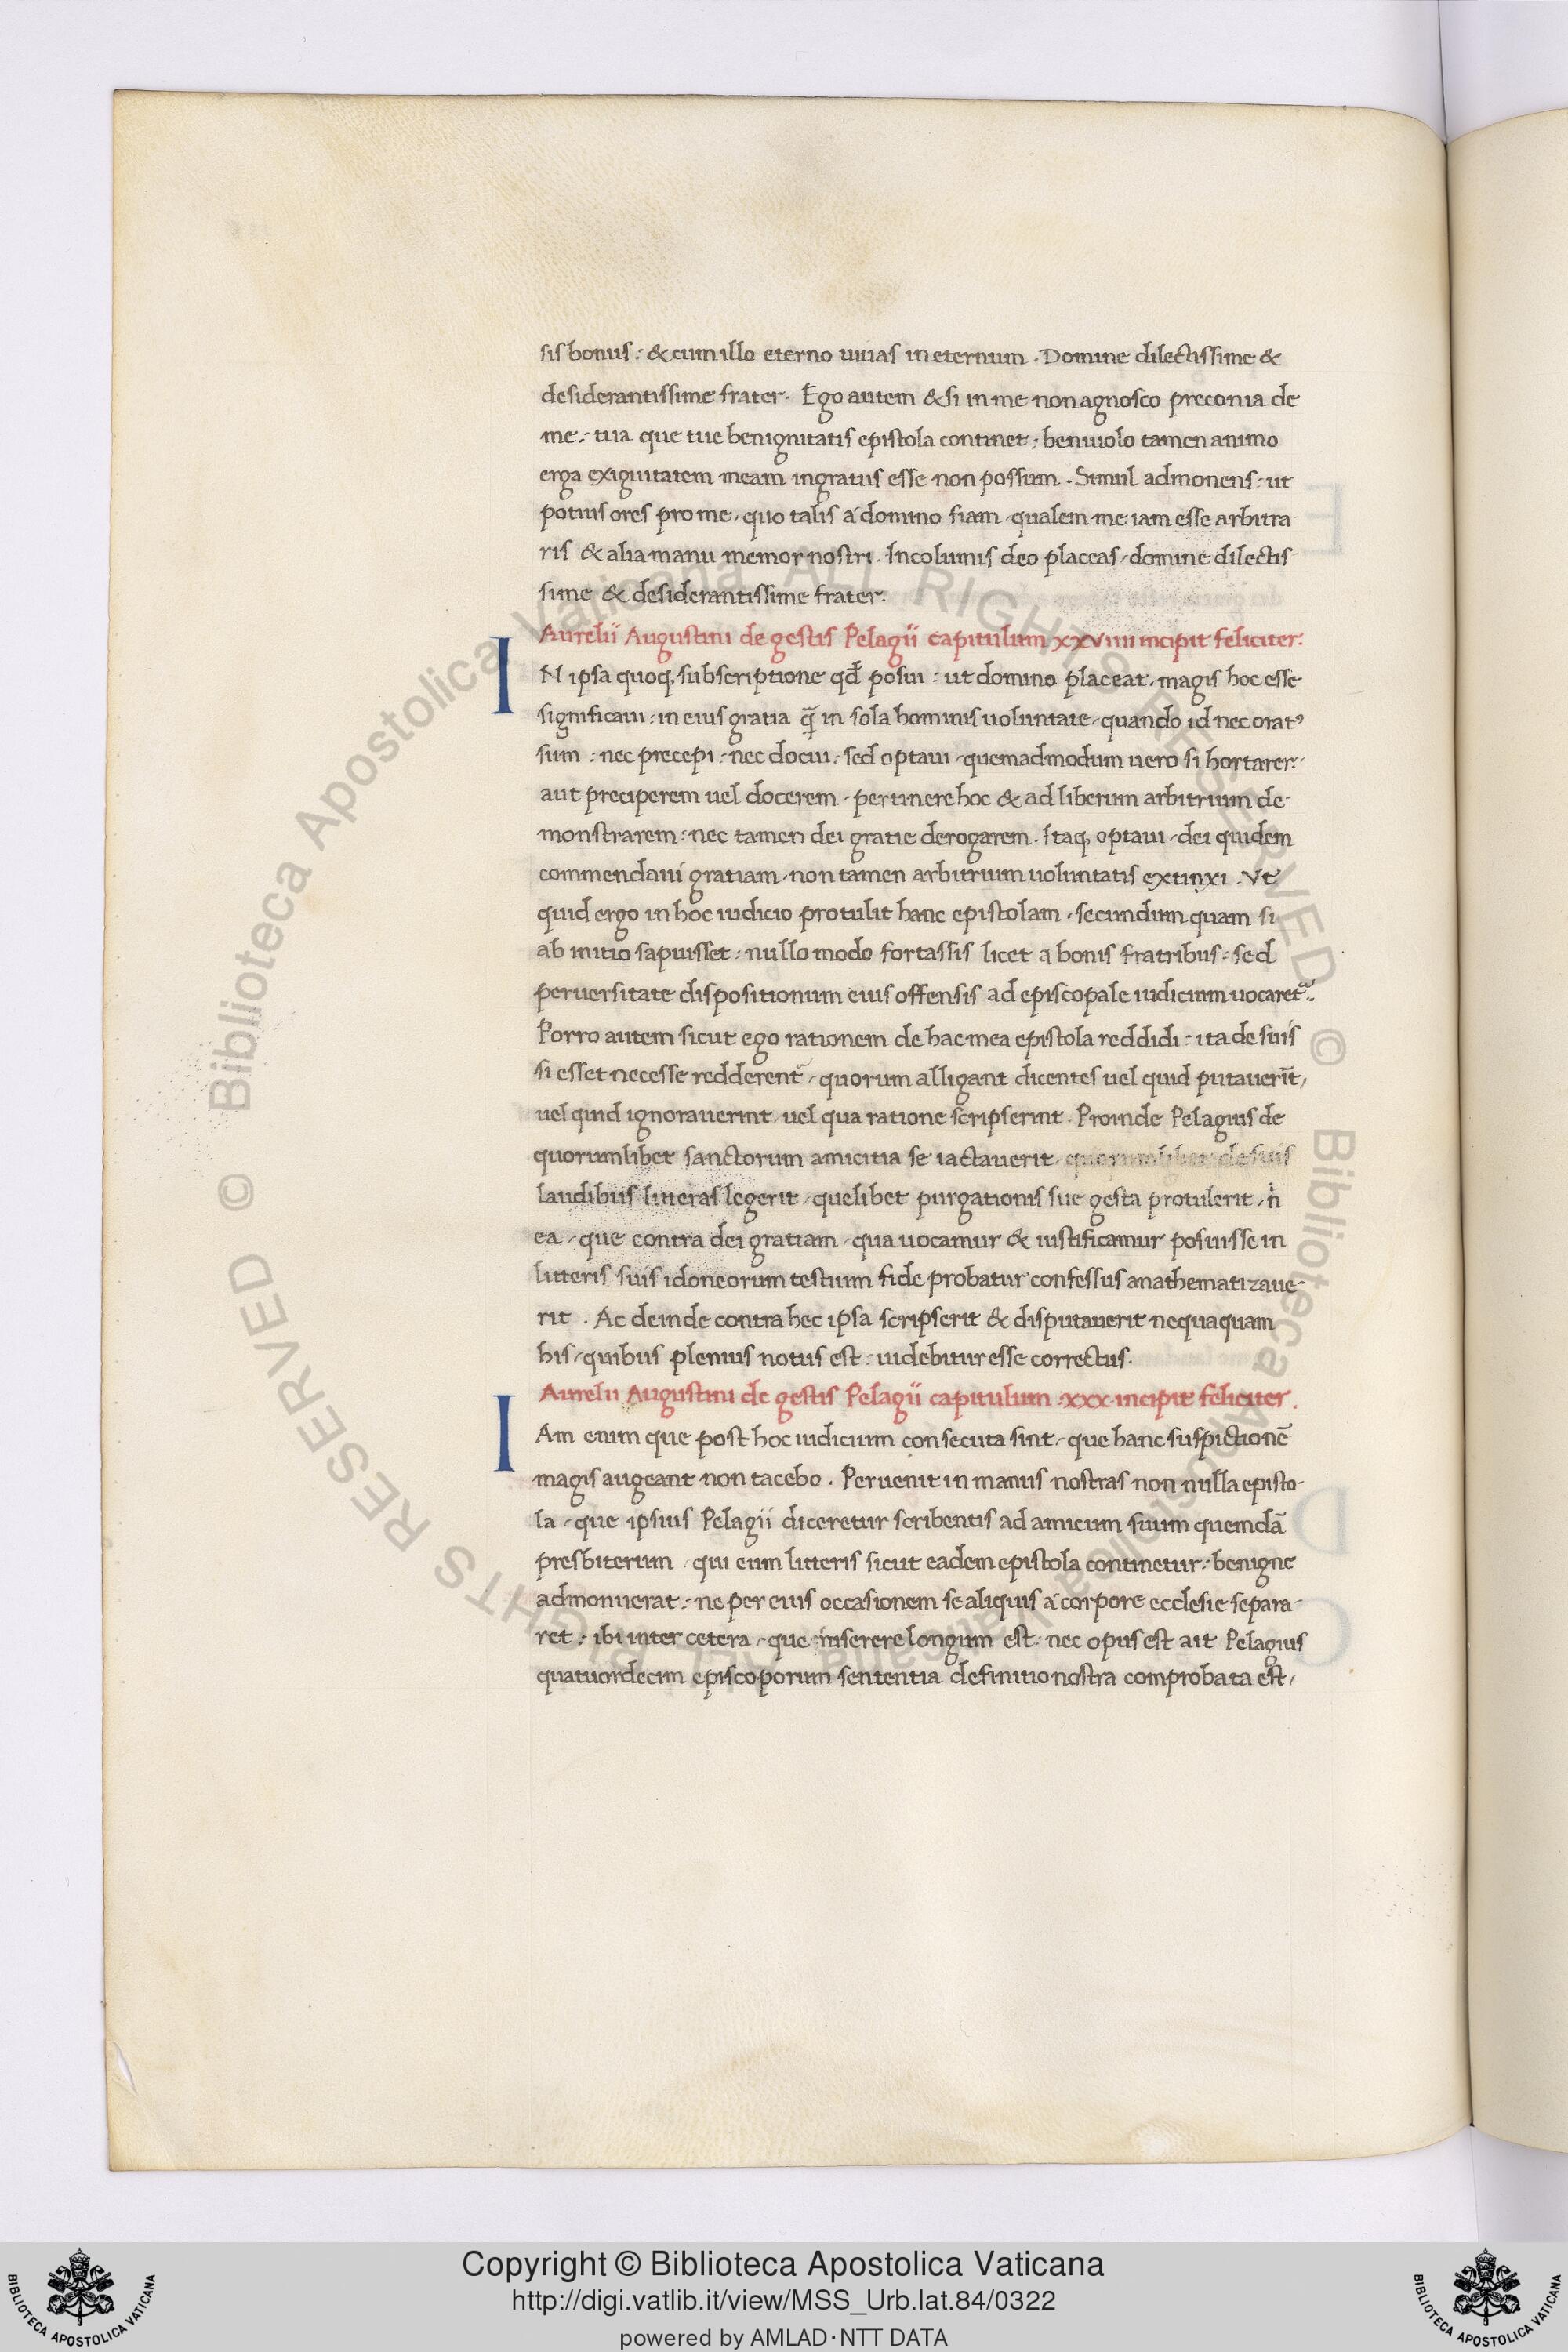 sis bonus : & cum illo eterno uiuas in eternum . Domine dilectissime &
desiderantissime frater . Ego autem & si in me non agnosco preconia de
me : tua que tue benignitatis epistola continet : beniuolo tamen animo
erga exiguitatem meam ingratus esse non possum . Simul admonens : ut
potius ores pro me , quo talis a domino fiam , qualem me iam esse arbitra
ris & alia manu memor nostri . Incolumis deo placeas , domine dilectis
sime & desiderantissime frater .
Aurelii Augustini de gestis Pelagii capitulum xxviiii incipit feliciter :
IN ipsa quoq, subscriptione qđ posui : ut domino placeat , magis hoc esse
significaui : in eius gratia q̃ in sola hominis uoluntate , quando id nec orat9
sum : nec precepi : nec docui : sed optaui , quemadmodum uero si hortarer :
aut preciperem uel docerem , pertinere hoc & ad liberum arbitrium de-
monstrarem : nec tamen dei gratie derogarem . Itaq, optaui , dei quidem
commendaui gratiam , non tamen arbitrium uoluntatis extinxi . Vt
quid ergo in hoc iudicio protulit hanc epistolam , secundum quam si
ab initio sapuisset : nullo modo fortassis licet a bonis fratribus : sed
peruersitate dispositionum eius offensis ad episcopale iudicium uocaret᷑ .
Porro autem sicut ego rationem de hac mea epistola reddidi : ita de suis
si esset necesse redderent᷑ , quorum alligant dicentes uel quid putauerīt ,
uel quid ignorauerint , uel qua ratione scripserint . Proinde Pelagius de
quorumlibet sanctorum amicitia se iactauerit , quorumlibet de suis
laudibus litteras legerit , quelibet purgationis sue gesta protulerit , n̄
ea , que contra dei gratiam , qua uocamur & iustificamur posuisse in
litteris suis idoneorum testium fide probatur confessus anathematizaue-
rit . Ac deinde contra hec ipsa scripserit & disputauerit nequaquam
his , quibus plenius notus est : uidebitur esse correctus .
Aurelii Augustini de gestis Pelagii capitulum : xxx incipit feliciter .
IAm enim que post hoc iudicium consecuta sint , que hanc suspictionē
magis augeant non tacebo . Peruenit in manus nostras non nulla episto-
la , que ipsius Pelagii diceretur scribentis ad amicum suum quemdā
presbiterum , qui eum litteris sicut eadem epistola continetur : benigne
admonuerat : ne per eius occasionem se aliquis a corpore ecclesie separa-
ret : ibi inter cetera , que inserere longum est . nec opus est ait Pelagius
quatuordecim episcoporum sententia definitio nostra comprobata est ,
© Biblioteca Apostolica Vaticana ALL RIGHTS RESERVED © Biblioteca Apostolica Vaticana ALL RIGHTS RESERVED
Copyright © Biblioteca Apostolica Vaticana
http://digi.vatlib.it/view/MSS_Urb.lat.84/0322
powered by AMLAD·NTT DATA
BIBLIOTECA APOSTOLICA VATICANA
BIBLIOTECA APOSTOLICA VATICANA